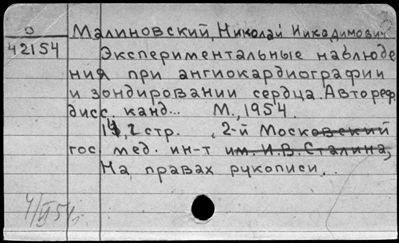 0
Малиновский, Николай Никадимович
42154
Экспериментальные наблюде
ния при ангиокардиографии
и зондировании сердца. Автореф.
дисс. канд... М., 1954.
стр. , 2-й Московский
гос. мед. ин-т им. И.В. Сталина,
На правах рукописи.